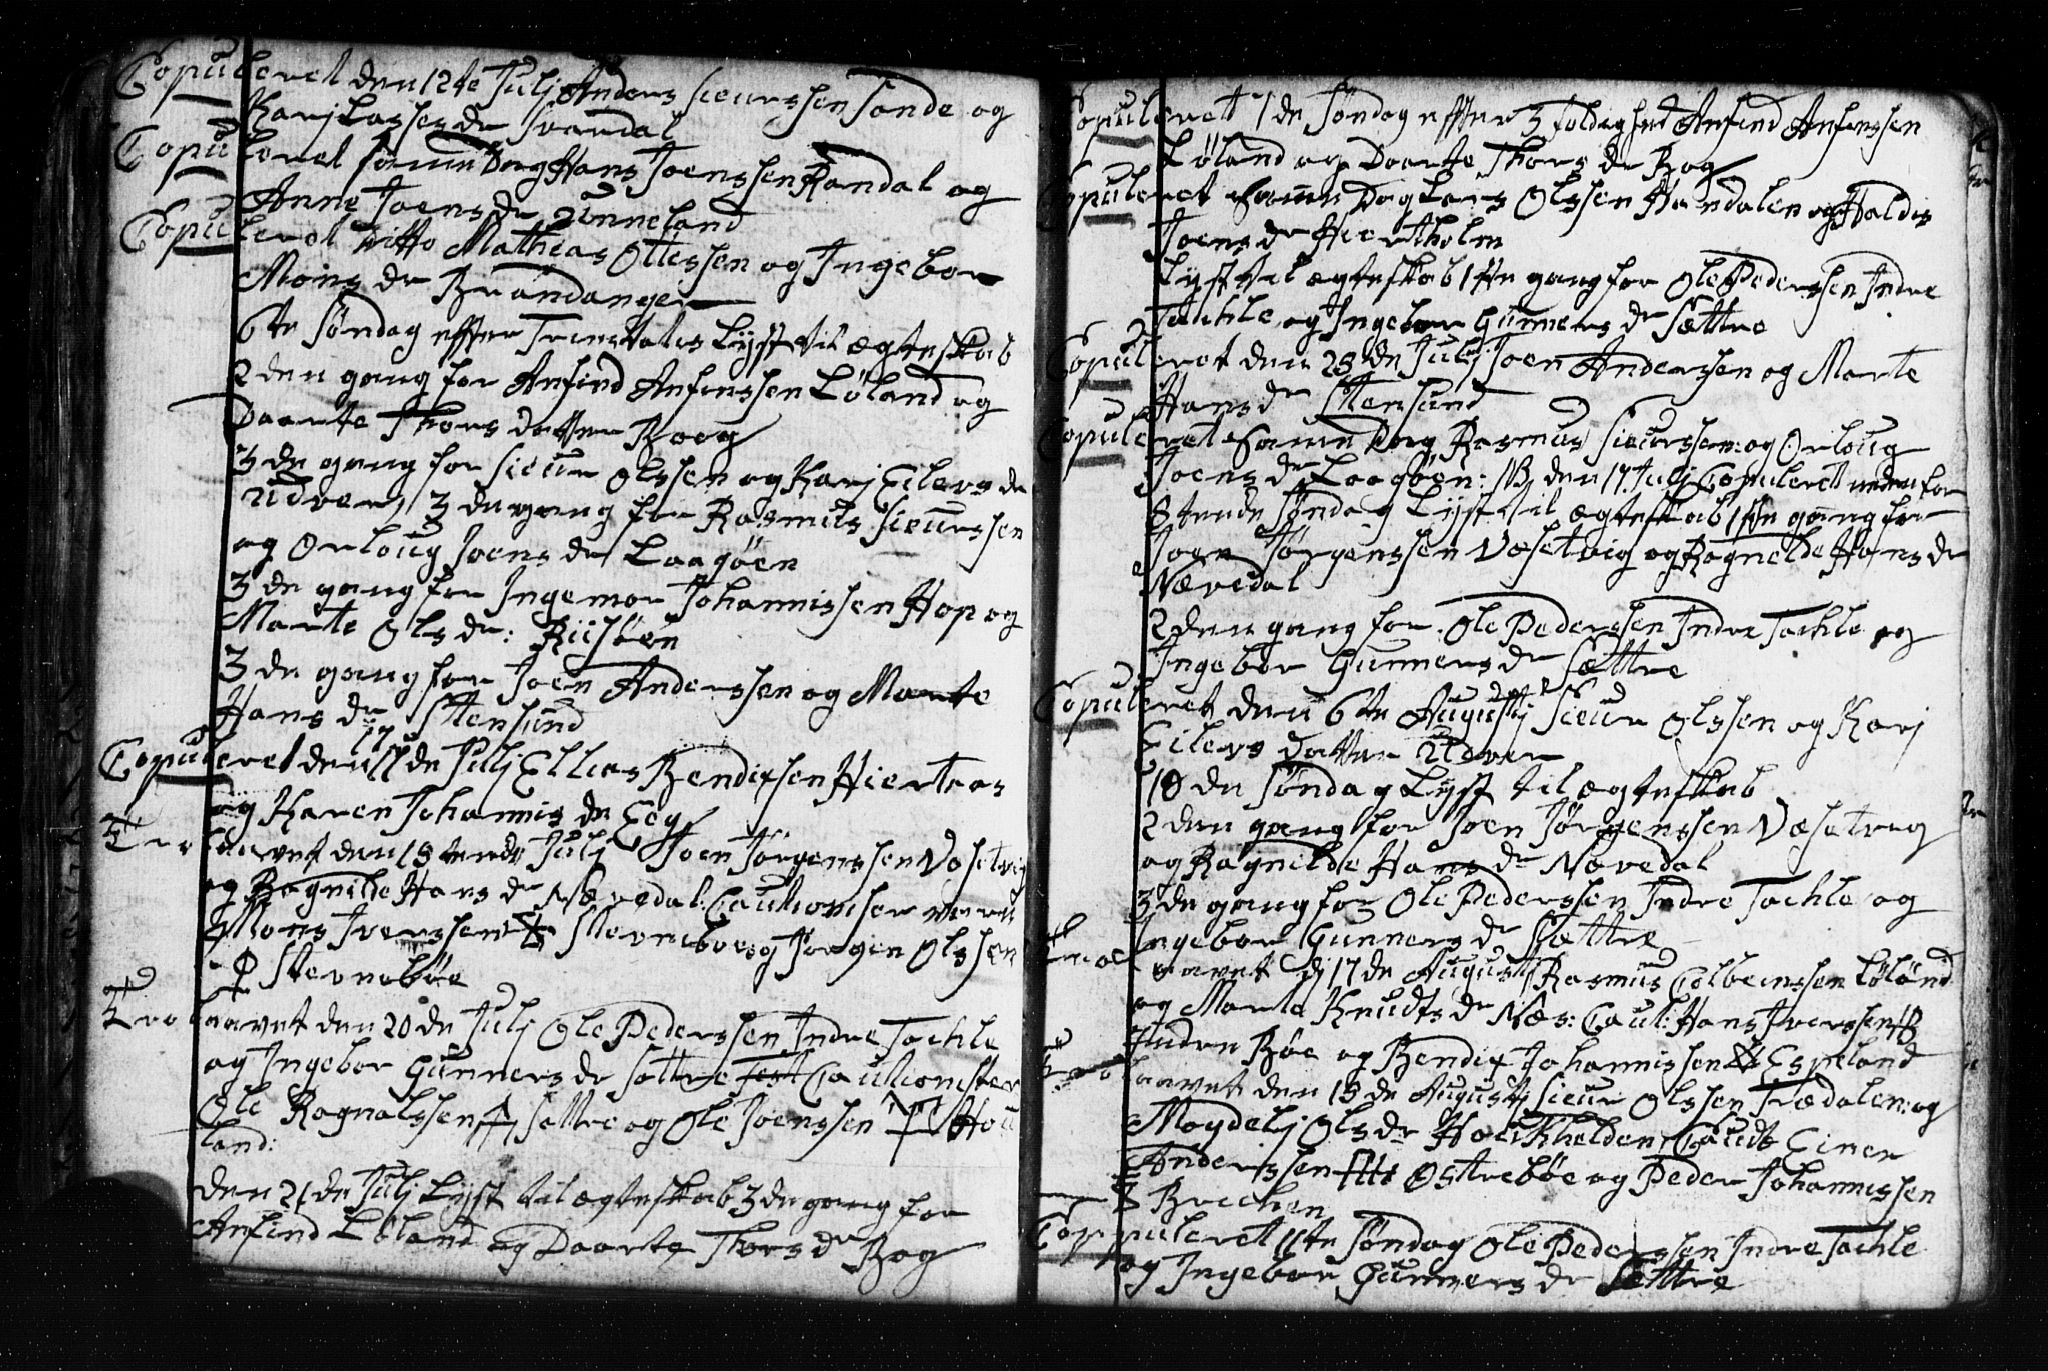 Copuleret den 12te Julj Anders Sieurssen Sonde og
Karj Lasses dr Svardal
Copuleret samme Dag Hans Joenssen Randal og
Anne Joens dr Ønneland
Copuleret ditto Mathias Ottessen og Ingebor
Mons dr Brandanger
6te Søndag effter Trinitatis Lyst til ægteskab
2den gang for Anfind Anfinssen Løland og
Daarte Thors datter Boeg
3de gang for Sieur Olssen og Karj Eilers dr
Udver, 3de gang for Rasmus Sieurssen
og Orloug Joens dr Laagøen
3de gang for Ingemor Johannissen Hop og
Marte Ols dr: Riisøen
3de gang for Joen Anderssen og Marte
Hans dr Stensund
Copuleret den 17de Julj Ellias Bendixsen Hiertaas
og Karen Johannis dr Eeg
Trolovet den 19tende Julj Joen Jørgenssen Vasetvig
og Ragnilde Hans dr Nævedal: Cautionister
Mons Iverssen Stevnebøe og Jørgen Olssen
Stevnebøe
Trolaavet den 20de Julj Ole Pederssen Indre Tachle
og Ingebor Gunners dr Sættre Cautionister
Ole Ragnalssen Sættre og Ole Joenssen Hou
land:
den 21de Julj Lyst til ægteskab 3de gang for
Anfind Løland og Daarte Thors dr Bog
Copuleret 7de Søndag effter 3foldighed Anfind Anfinssen
Løland og Daarte Thors dr Bog
Copuleret samme Dag Lars Olssen Handalen og Haldis
Joens dr Hiortholm
Lyst til ægteskab 1ste gang for Ole Pederssen Indre
Tachle og Ingebor Gunners dr Sættre
Copuleret den 23de Julj Joen Anderssen og Marte
Hans dr Stensund
Copuleret samme Dag Rasmus Sieurssen: og Orloug
Joens dr Laagøen: NB den 17. Julj Copuleret neden for
8tende Søndag Lyst til ægteskab 1ste gang for
Joen Jørgenssen Vasetvig og Ragnelde Hans dr
Nævedal
2den gang for Ole Pederssen Indre Tachle og
Ingebor Gunners dr Sættre
Copuleret den 6te Augustj Sieur Olssen og Karj
Eilers datter Udver
10de Søndag Lyst til ægteskab
2den gang for Joen Jørgenssen Vasetvig
og Ragnilde Hans dr Nævedal
3de gang for Ole Pederssen Indre Tachle og
Ingebor Gunners dr Sættre
Troelaavet dj 17de Augustj Rasmus Colbeinssen Løland
og Marte Knudts dr Næs: Caut: Hans Iverssen
Indre Bøe og Bendix Johannissen Espeland
Troelaavet den 19de Augustj Sieur Olssen Trædalen: og
Moydelj Ols dr Einer
Anderssen Østrebøe og Peder Johannissen
Brechen
Coppuleret 11te Søndag Ole Pederssen Indre Tachle
og Ingebor Gunners dr Sættre